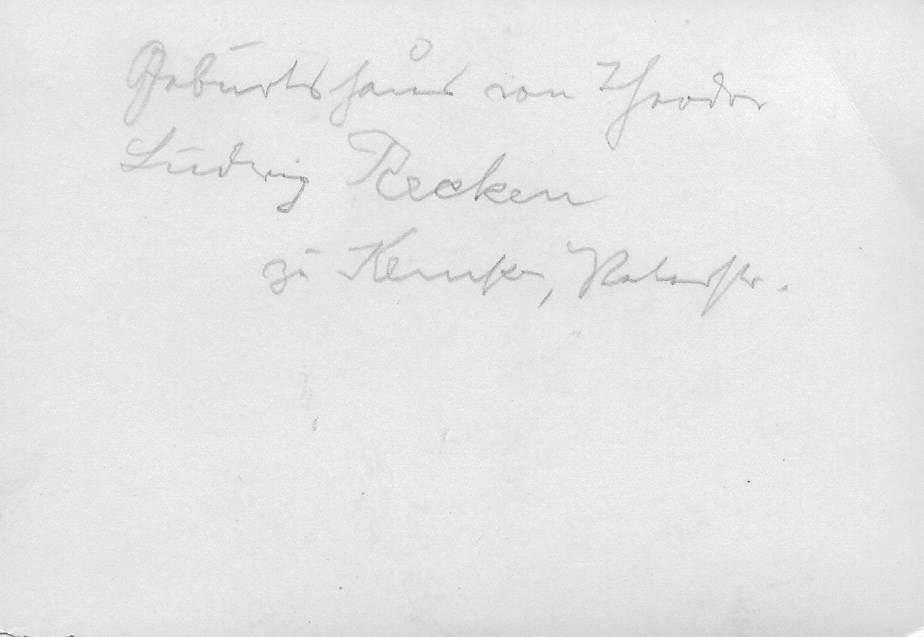 Geburtshaus von Theodor
Ludwig Recken
zu Kempen,